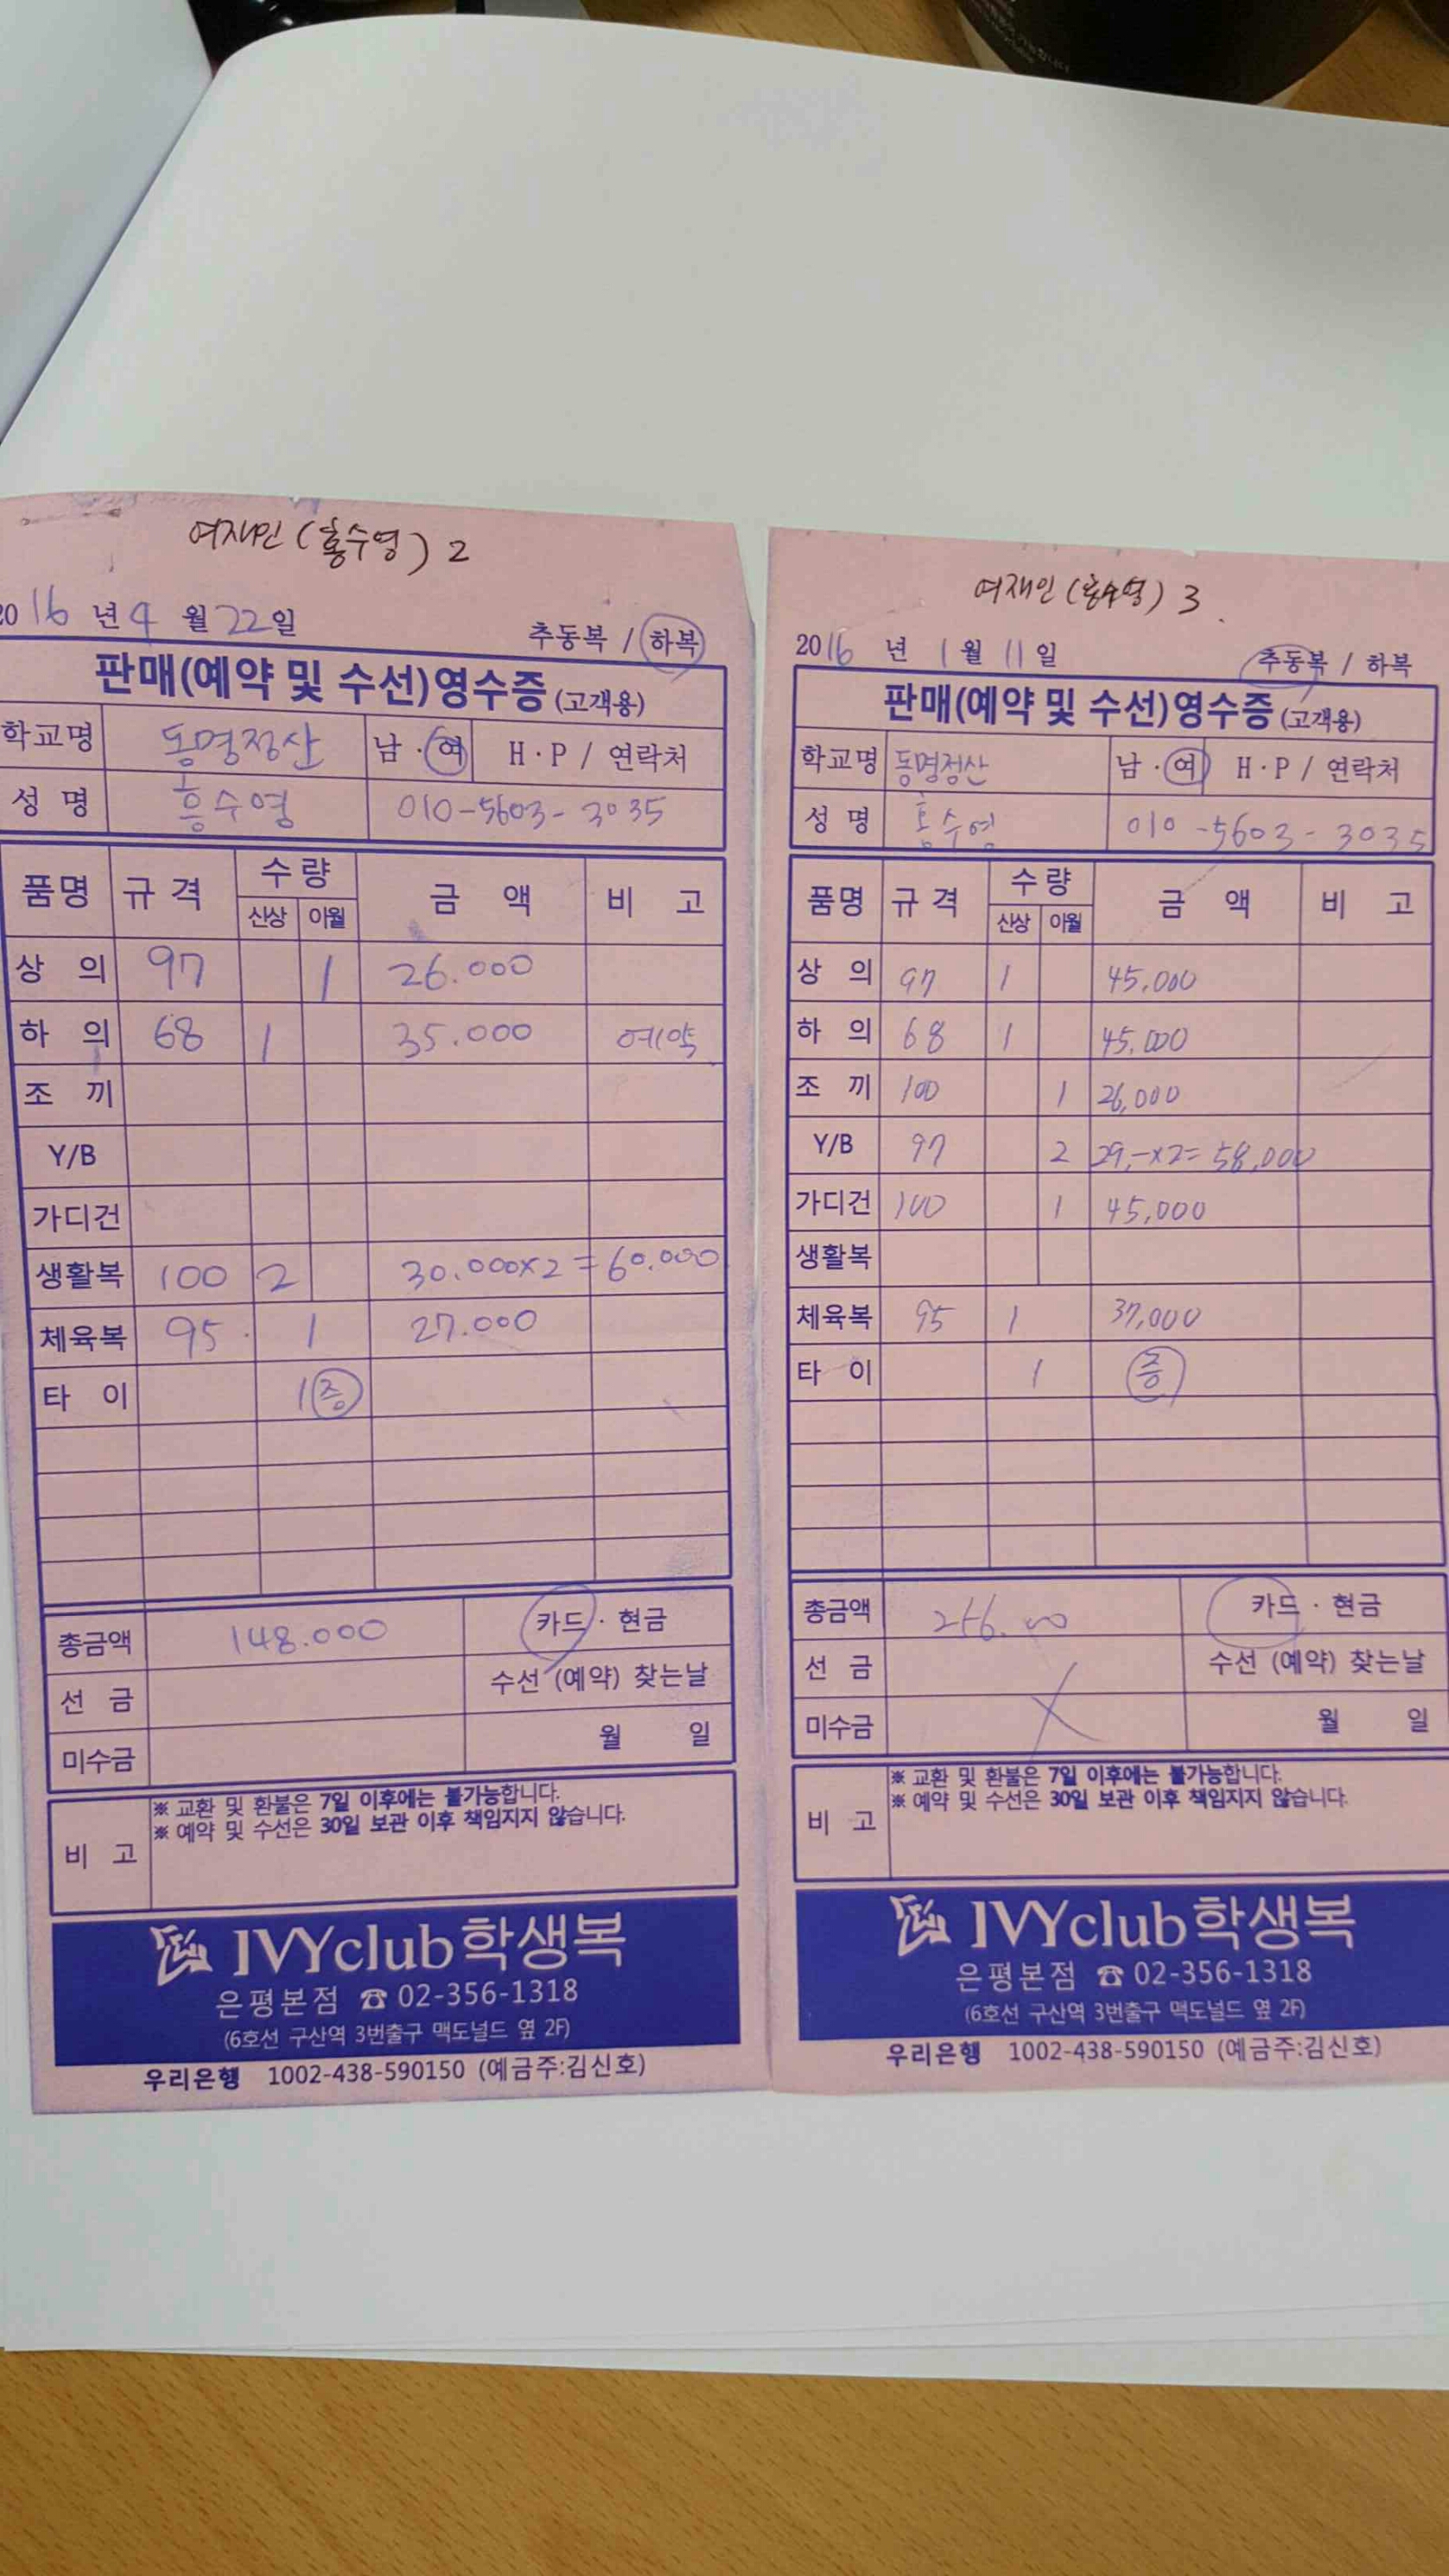 여재인 (홍수영) 2
2016 년 4 월 22일
추동복 / 하복
판매(예약 및 수선)영수증 (고객용)
학교명 동명정산 남 · 여 H·P / 연락처
성 명 홍수영 010-5603-3035
품명 규격 수량 금 액 비 고
신상 이월
상 의 97 1 26.000
하 의 68 1 35.000 예약
조 끼
Y/B
가디건
생활복 100 2 30.000x2=60.000
체육복 95 1 27.000
타 이 1 증
총금액 148.000 카드 · 현금
선 금 수선 (예약) 찾는날
미수금 월 일
비 고
※ 교환 및 환불은 7일 이후에는 불가능합니다.
※ 예약 및 수선은 30일 보관 이후 책임지지 않습니다.
IVYclub학생복
은평본점 ☎ 02-356-1318
(6호선 구산역 3번출구 맥도널드 옆 2F)
우리은행 1002-438-590150 (예금주:김신호)
여재인 (홍수영) 3
2016 년 1 월 11 일
추동복 / 하복
판매(예약 및 수선)영수증 (고객용)
학교명 동명정산 남 · 여 H·P / 연락처
성 명 홍수영 010-5603-3035
품명 규격 수량 금 액 비 고
신상 이월
상 의 97 1 45,000
하 의 68 1 45,000
조 끼 100 1 26,000
Y/B 97 2 29,-x2= 58,000
가디건 100 1 45,000
생활복
체육복 95 1 37,000
타 이 1 증
총금액 카드 · 현금
선 금 수선 (예약) 찾는날
미수금 월 일
비 고
※ 교환 및 환불은 7일 이후에는 불가능합니다.
※ 예약 및 수선은 30일 보관 이후 책임지지 않습니다.
IVYclub학생복
은평본점 ☎ 02-356-1318
(6호선 구산역 3번출구 맥도널드 옆 2F)
우리은행 1002-438-590150 (예금주:김신호)